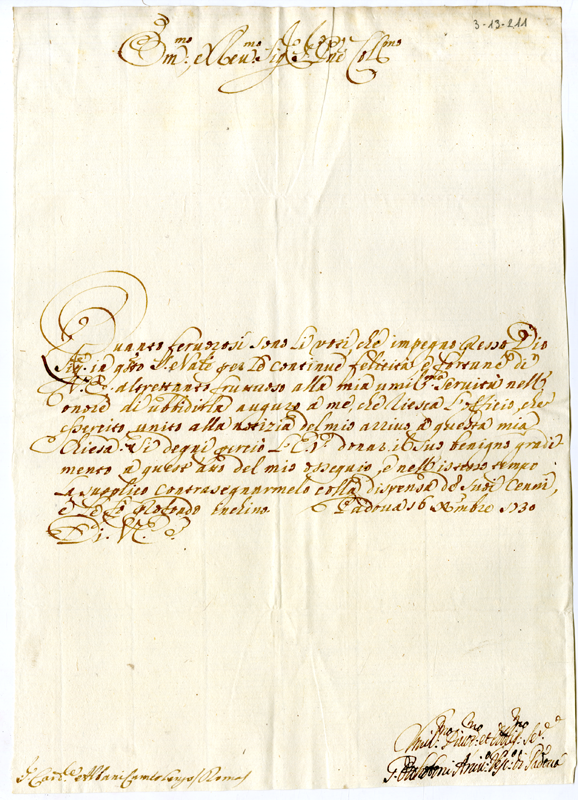 3-13-211
Em.mo e Rev.mo Sig.re P.ron Col.mo
Quanto fervorosi sono li voti che impegno presso Dio
Sig.re in q.sto S. Natale per le continue felicità, e fortune di
V. E. altrettanto fruttuoso alla mia umil.ma servitù nell'
onore di ubbidirla auguro a me, che riesca l'officio, che
esercito, unito alla notizia del mio arrivo a questa mia
Chiesa. Si degni perciò l'E. V. donar il suo benigno gradi
mento a quest'atto del mio ossequio, e nell'istesso tempo
la supplico contrasegnarmelo colla dispensa de suoi cenni,
e profondo inchino Padova 16 Xmbre 1730
Di V. E.
Umil.mo Div.mo et Obl.mo Ser.
Arciv.o Vesc.o di Padova
S. Card.e Albani Camerlengo Roma